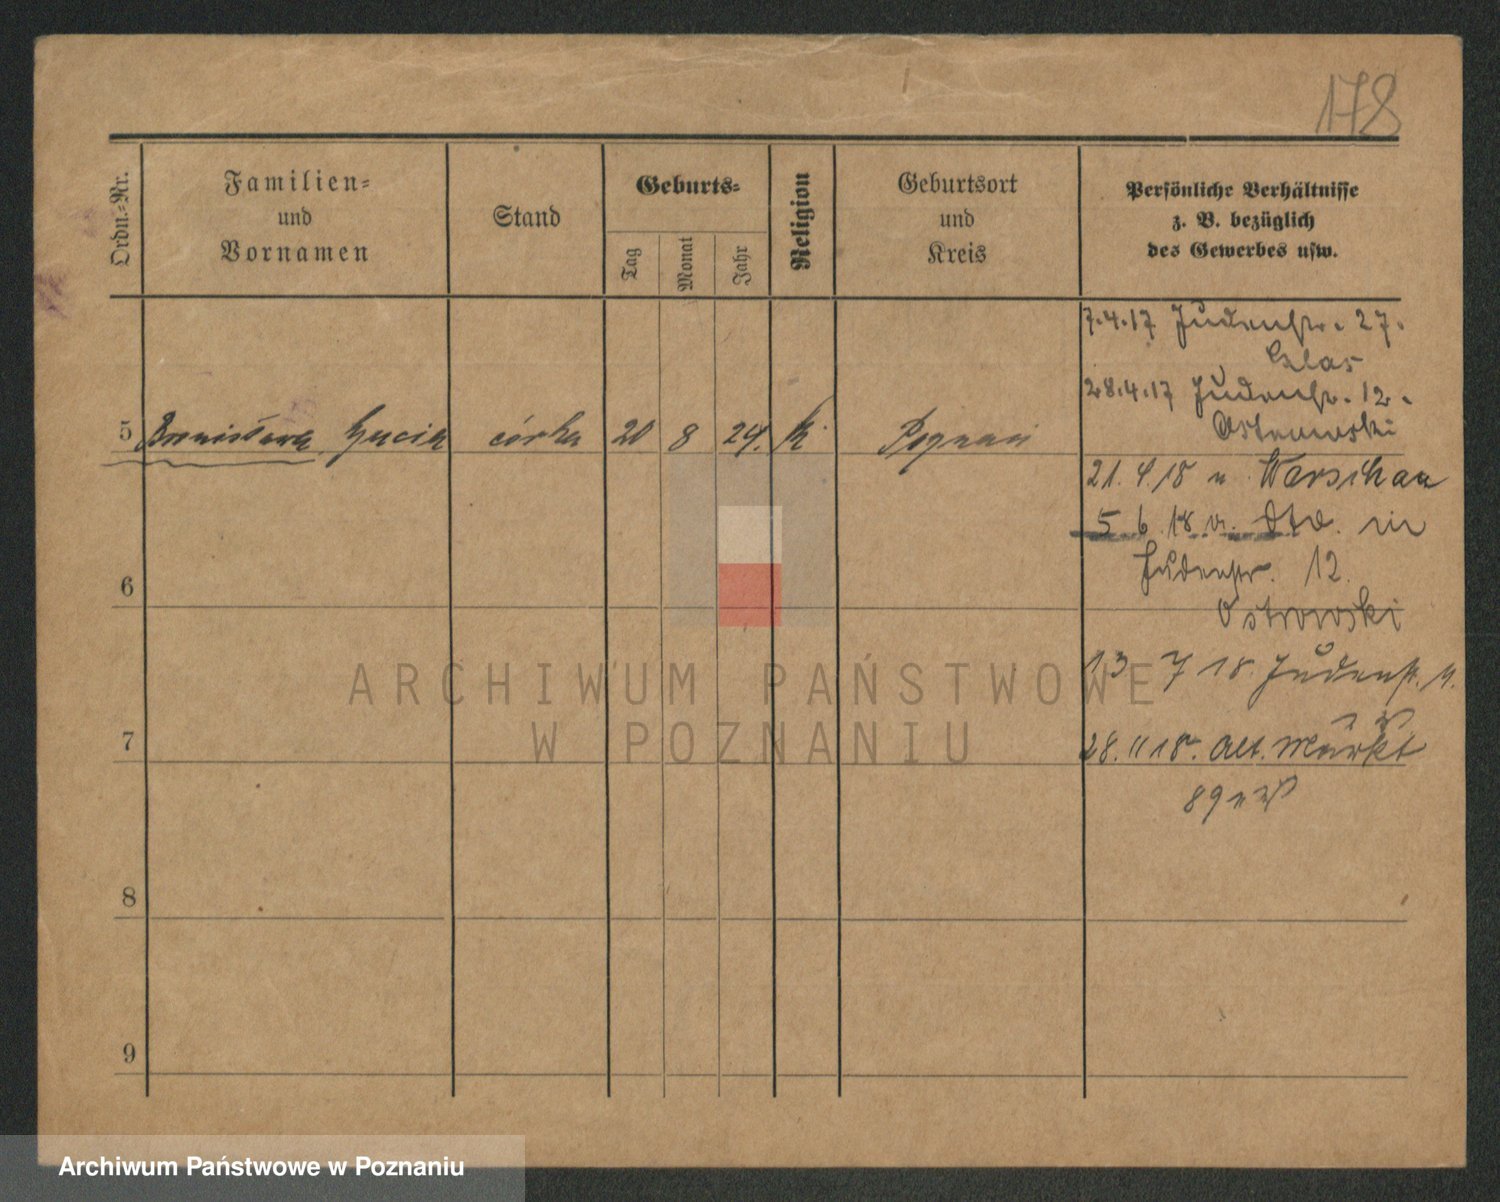 178
Ordn.-Nr.
Familien-
und
Vornamen
Stand
Geburts-
Tag
Monat
Jahr
Religion
Geburtsort
und
Kreis
Persönliche Verhältnisse
z. B. bezüglich
des Gewerbes usw.
7.4.17 Judenstr. 27.
28.4.17 Judenstr. 12.
Ostrowski
5 Bronisława córka 20 8 24. K Poznań
21. 4. 18 n Warschau
5 6 18 v. in
Judenstr. 12.
Ostrowski
6
13 7 18. Judenst.
28. 11 18. Alt. Markt
89
7
8
9
ARCHIWUM PAŃSTWOWE
W POZNANIU
Archiwum Państwowe w Poznaniu